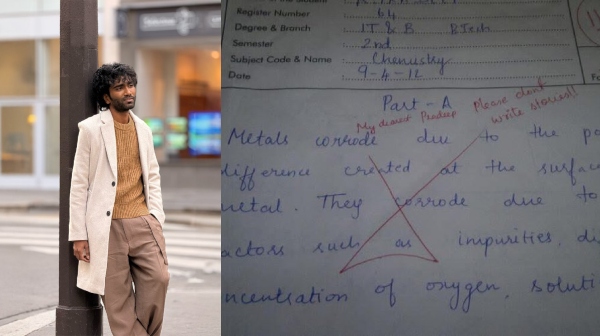 Register Number 64
Degree & Branch IT & B BTech
Semester 2nd
Subject Code & Name Chemistry
Date 9-4-12
Part - A
My dearest Pradeep
Please don't
write stories!!
Metals corrode due to the po
difference created at the surfac
metal. They corrode due to
actors such as impurities, di
ncentration of oxygen, soluti